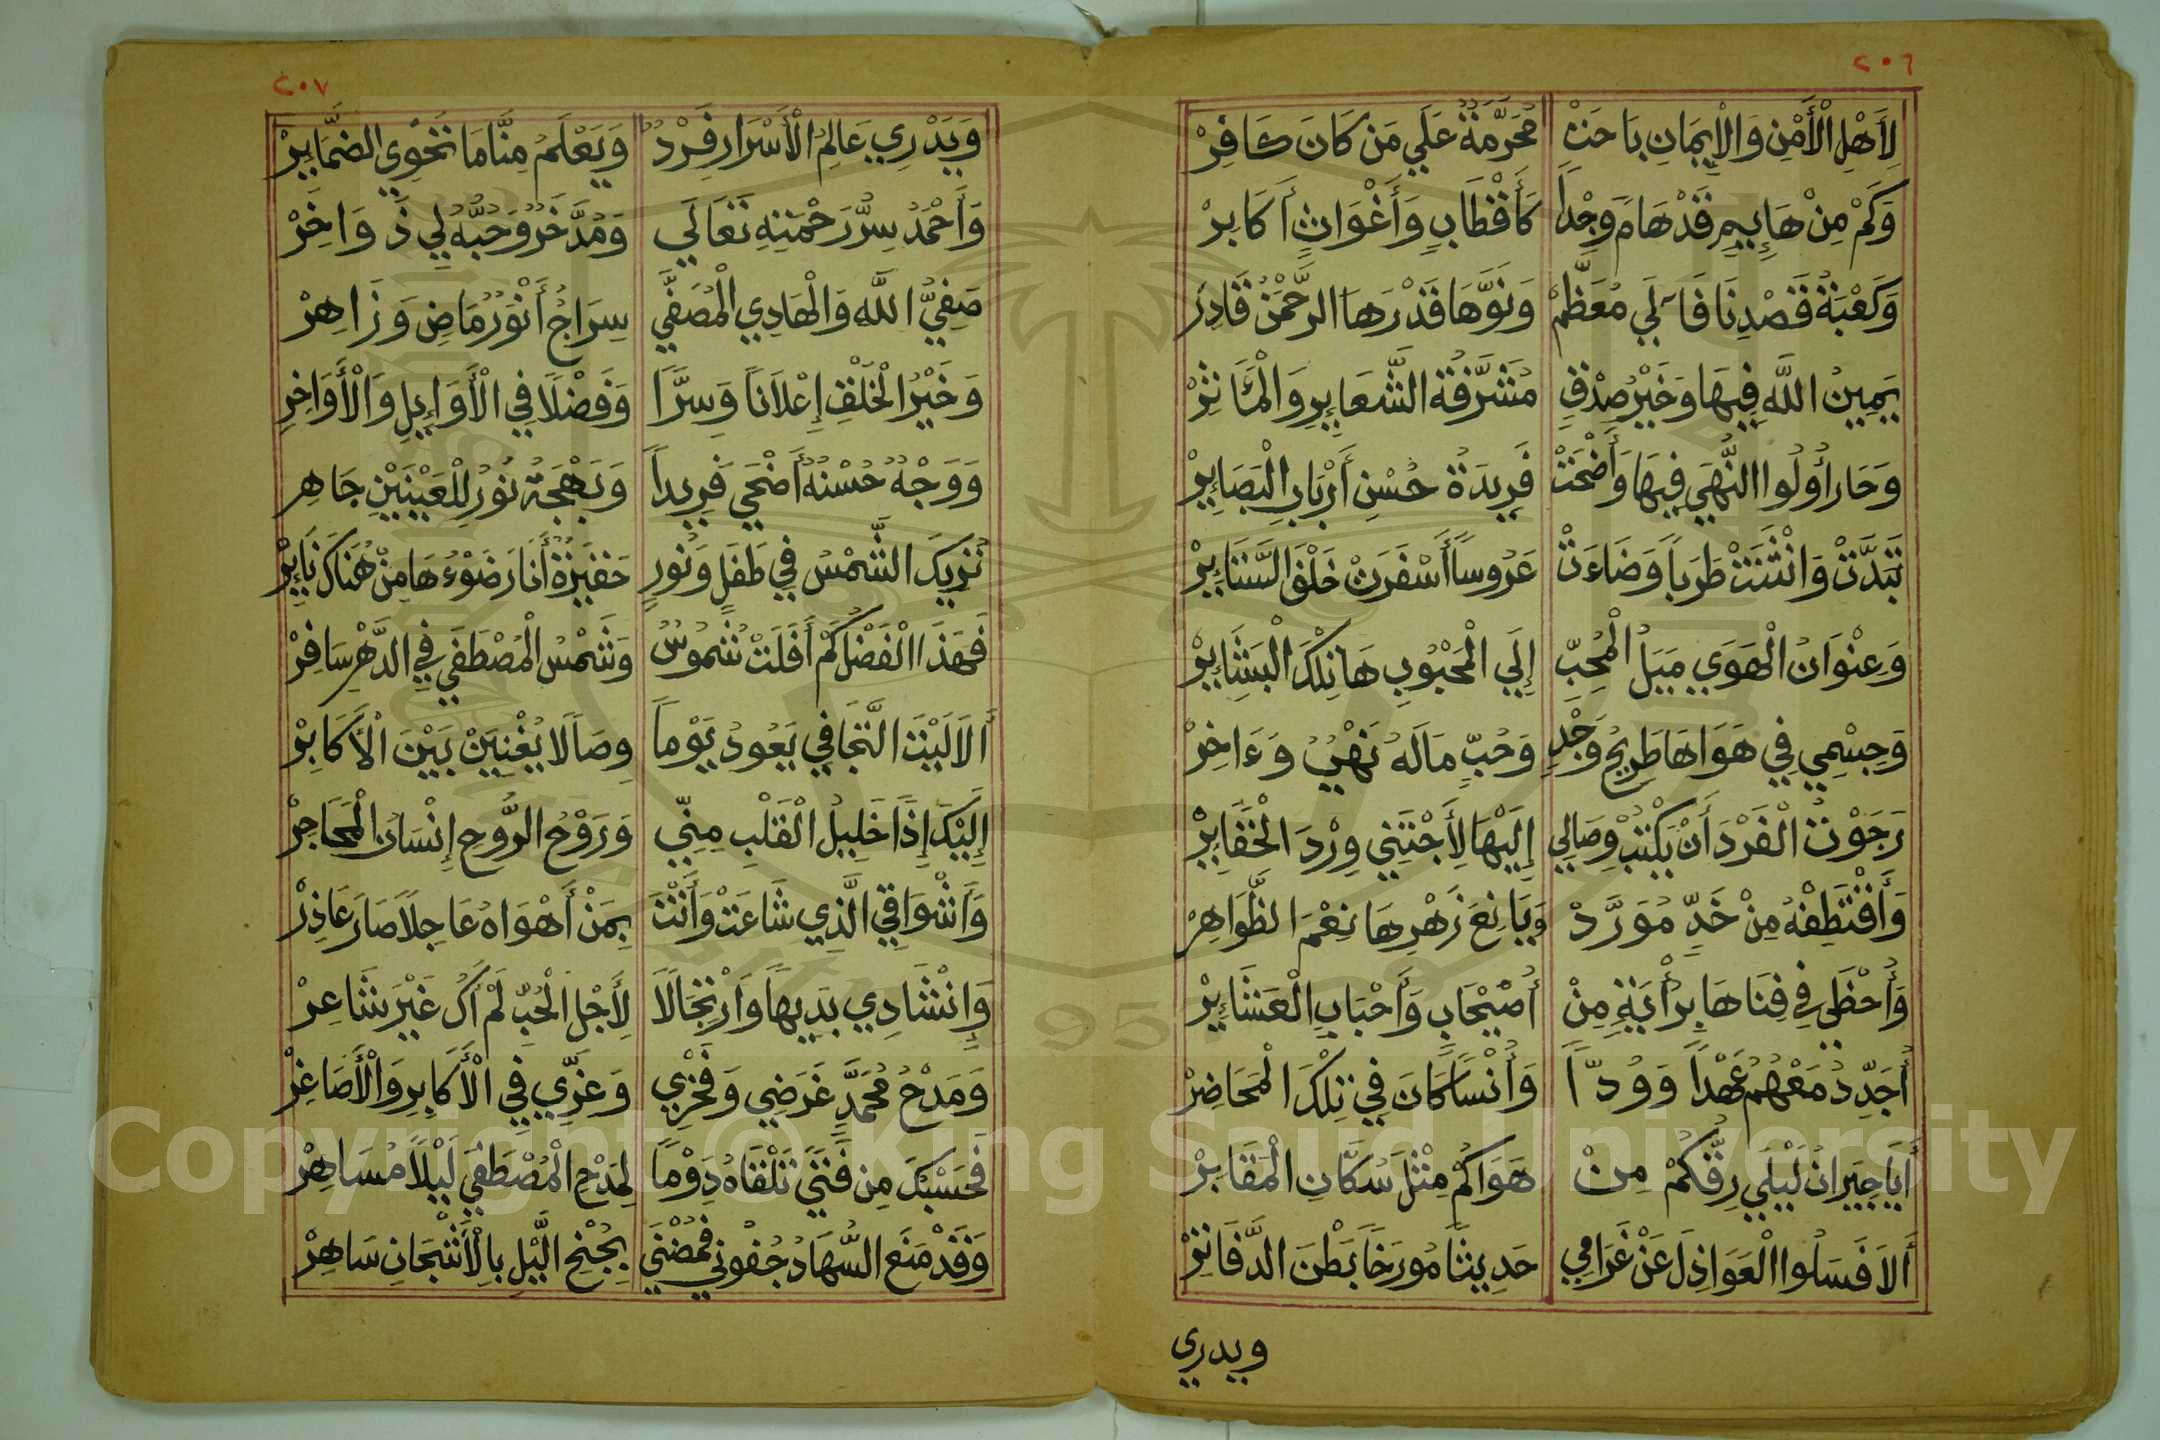 ٢٠٦
لِأَهْلِ الْأَمْنِ وَالْإِيمَانِ بَاحَتْ مُحَرَّمَةٌ عَلَي مَن كَانَ كَافِرْ
وَكَمْ مِنْ هَإِيمٍ قَدْ هَامَ وَجْداً كَأَقْطَابٍ وَأَغْوَاثٍ أَكَابِرْ
وَكَعْبَةُ قَصْدِنَا فَآلَي مُعَظَّمْ وَنَوَّهَا قَدْرَهَا الرَّحْمٰنُ قَادِرْ
يَمِينُ اللَّهِ فِيهَا وَخَيْرُ صِدْقٍ مُشَرَّفَةُ الشَّعَإِيرِ وَالْمَآثِرْ
وَحَارَ أُولُوا النُّهَي فِيهَا وَأَضْحَتْ فَرِيدَةُ حُسْنِ أَرْبَابِ الْبَصَإِيرْ
تَبَدَّتْ وَانْثَنَتْ طَرَباً وَضَاءَتْ عَرُوساً أَسْفَرَتْ خَلْفَ السَّتَإِيرْ
وَعِنْوَانُ الْهَوَي مَيْلُ الْمُحِبِّ إِلَي الْمَحْبُوبِ هَا تِلْكَ الْبَشَإِيرْ
وَجِسْمِي فِي هَوَاهَا طَرِيحُ وَجْدٍ وَحُبٍّ مَالَهُ نَهْيٌ وَءَاخِرْ
رَجَوْتُ الْفَرْدَ أَنْ يَكْتُبْ وِصَالِي إِلَيْهَا لِأَجْتَنِي وِرْدَ الْخَفَإِيرْ
وَأَقْتَطِفْهُ مِنْ خَدٍّ مُوَرَّدْ وَيَانِعَ زَهْرِهَا نِعْمَ الظَّوَاهِرْ
وَأُحْظَي فِي فِنَاهَا بِرُأْيَةٍ مِنْ أُصَيْحَابٍ وَأَحْبَابِ الْعَشَإِيرْ
أُجَدِّدُ مَعْهُمُ عَهْداً وَوُدّاً وَأُنْساً كَانَ فِي تِلْكَ الْمَحَاضِرْ
أَيَا جِيرَانَ لَيْلَي رِقُّكُمْ مِنْ هَوَاكُمْ مِثْلَ سُكَّانِ الْمَقَابِرْ
أَلَا فَسَلُوا الْعَوَاذِلَ عَنْ غَرَامِي حَدِيثاً مُورَخاً بَطْنَ الدَّفَاتِرْ
ويدري
٢٠٧
وَيَدْرِي عَالِمُ الْأَسْرَارِ فَرْدٌ وَيَعْلَمُ مِنَّا مَا تَحْوِي الضَّمَايِرْ
وَأَحْمَدُ سِرُّ رَحْمَتِهِ تَعَالَي وَمُدَّخَرٌ وَحُبُّهُ لِي ذَوَاخِرْ
صَفِيُّ اللَّهِ وَالْهَادِي الْمُصَفَّي سِرَاجُ أَنْوَرُ مَاضٍ وَزَاهِرْ
وَخَيْرُ الْخَلْقِ إِعْلَاناً وَسِرّاً وَفَضْلاً فِي الْأَوَإِيلِ وَالْأَوَاخِرِ
وَوَجْهُ حُسْنُهُ أَضْحَي فَرِيداً وَبَهْجَةُ نُورُ لِلْعَيْنَيْنِ جَاهِرْ
تُرِيكَ الشَّمْسُ فِي طَفَلٍ وَنُورٍ حَفَيْرَةُ أَنَارَ ضَوْءُهَا مِنْ هُنَاكَ نَإِيرْ
فَهَذَا الْفَضْلُ كَمْ أَفَلَتْ شُمُوسٌ وَشَمْسُ الْمُصْطَفَي فِي الدَّهْرِ سَافِرْ
أَلَا لَيْتَ التَّجَافِي يَعُودُ يَوْماً وِصَالاً يُغْنِيَنْ بَيْنَ الْأَكَابِرْ
إِلَيْكَ إِذاً خَلِيلُ الْقَلْبِ مِنِّي وَرَوْحُ الرُّوحِ إِنْسَانُ الْمَحَاجِرْ
وَأَشْوَاقِي الَّذِي شَاعَتْ وَأَنْتَ بِمَنْ أَهْوَاهُ عَاجِلاً صَارَ عَاذِرْ
وَإِنْشَادِي بَدِيهاً وَارْتِجَالاً لِأَجْلِ الْحُبِّ لَمْ أَكُ غَيْرَ شَاعِرْ
وَمَدْحُ مُحَمَّدٍ غَرَضِي وَفَخْرِي وَعِزِّي فِي الْأَكَابِرِ وَالْأَصَاغِرْ
فَحَسْبُكَ مِن فَتًي تَلْقَاهُ دَوْماً لِمَدْحِ الْمُصْطَفَي لَيْلاً مُسَاهِرْ
وَقَدْ مَنَعَ السُّهَادُ جُفُونِي غَمْضَتِي بِجُنْحِ الَّيْلِ بِالْأَشْجَانِ سَاهِرْ